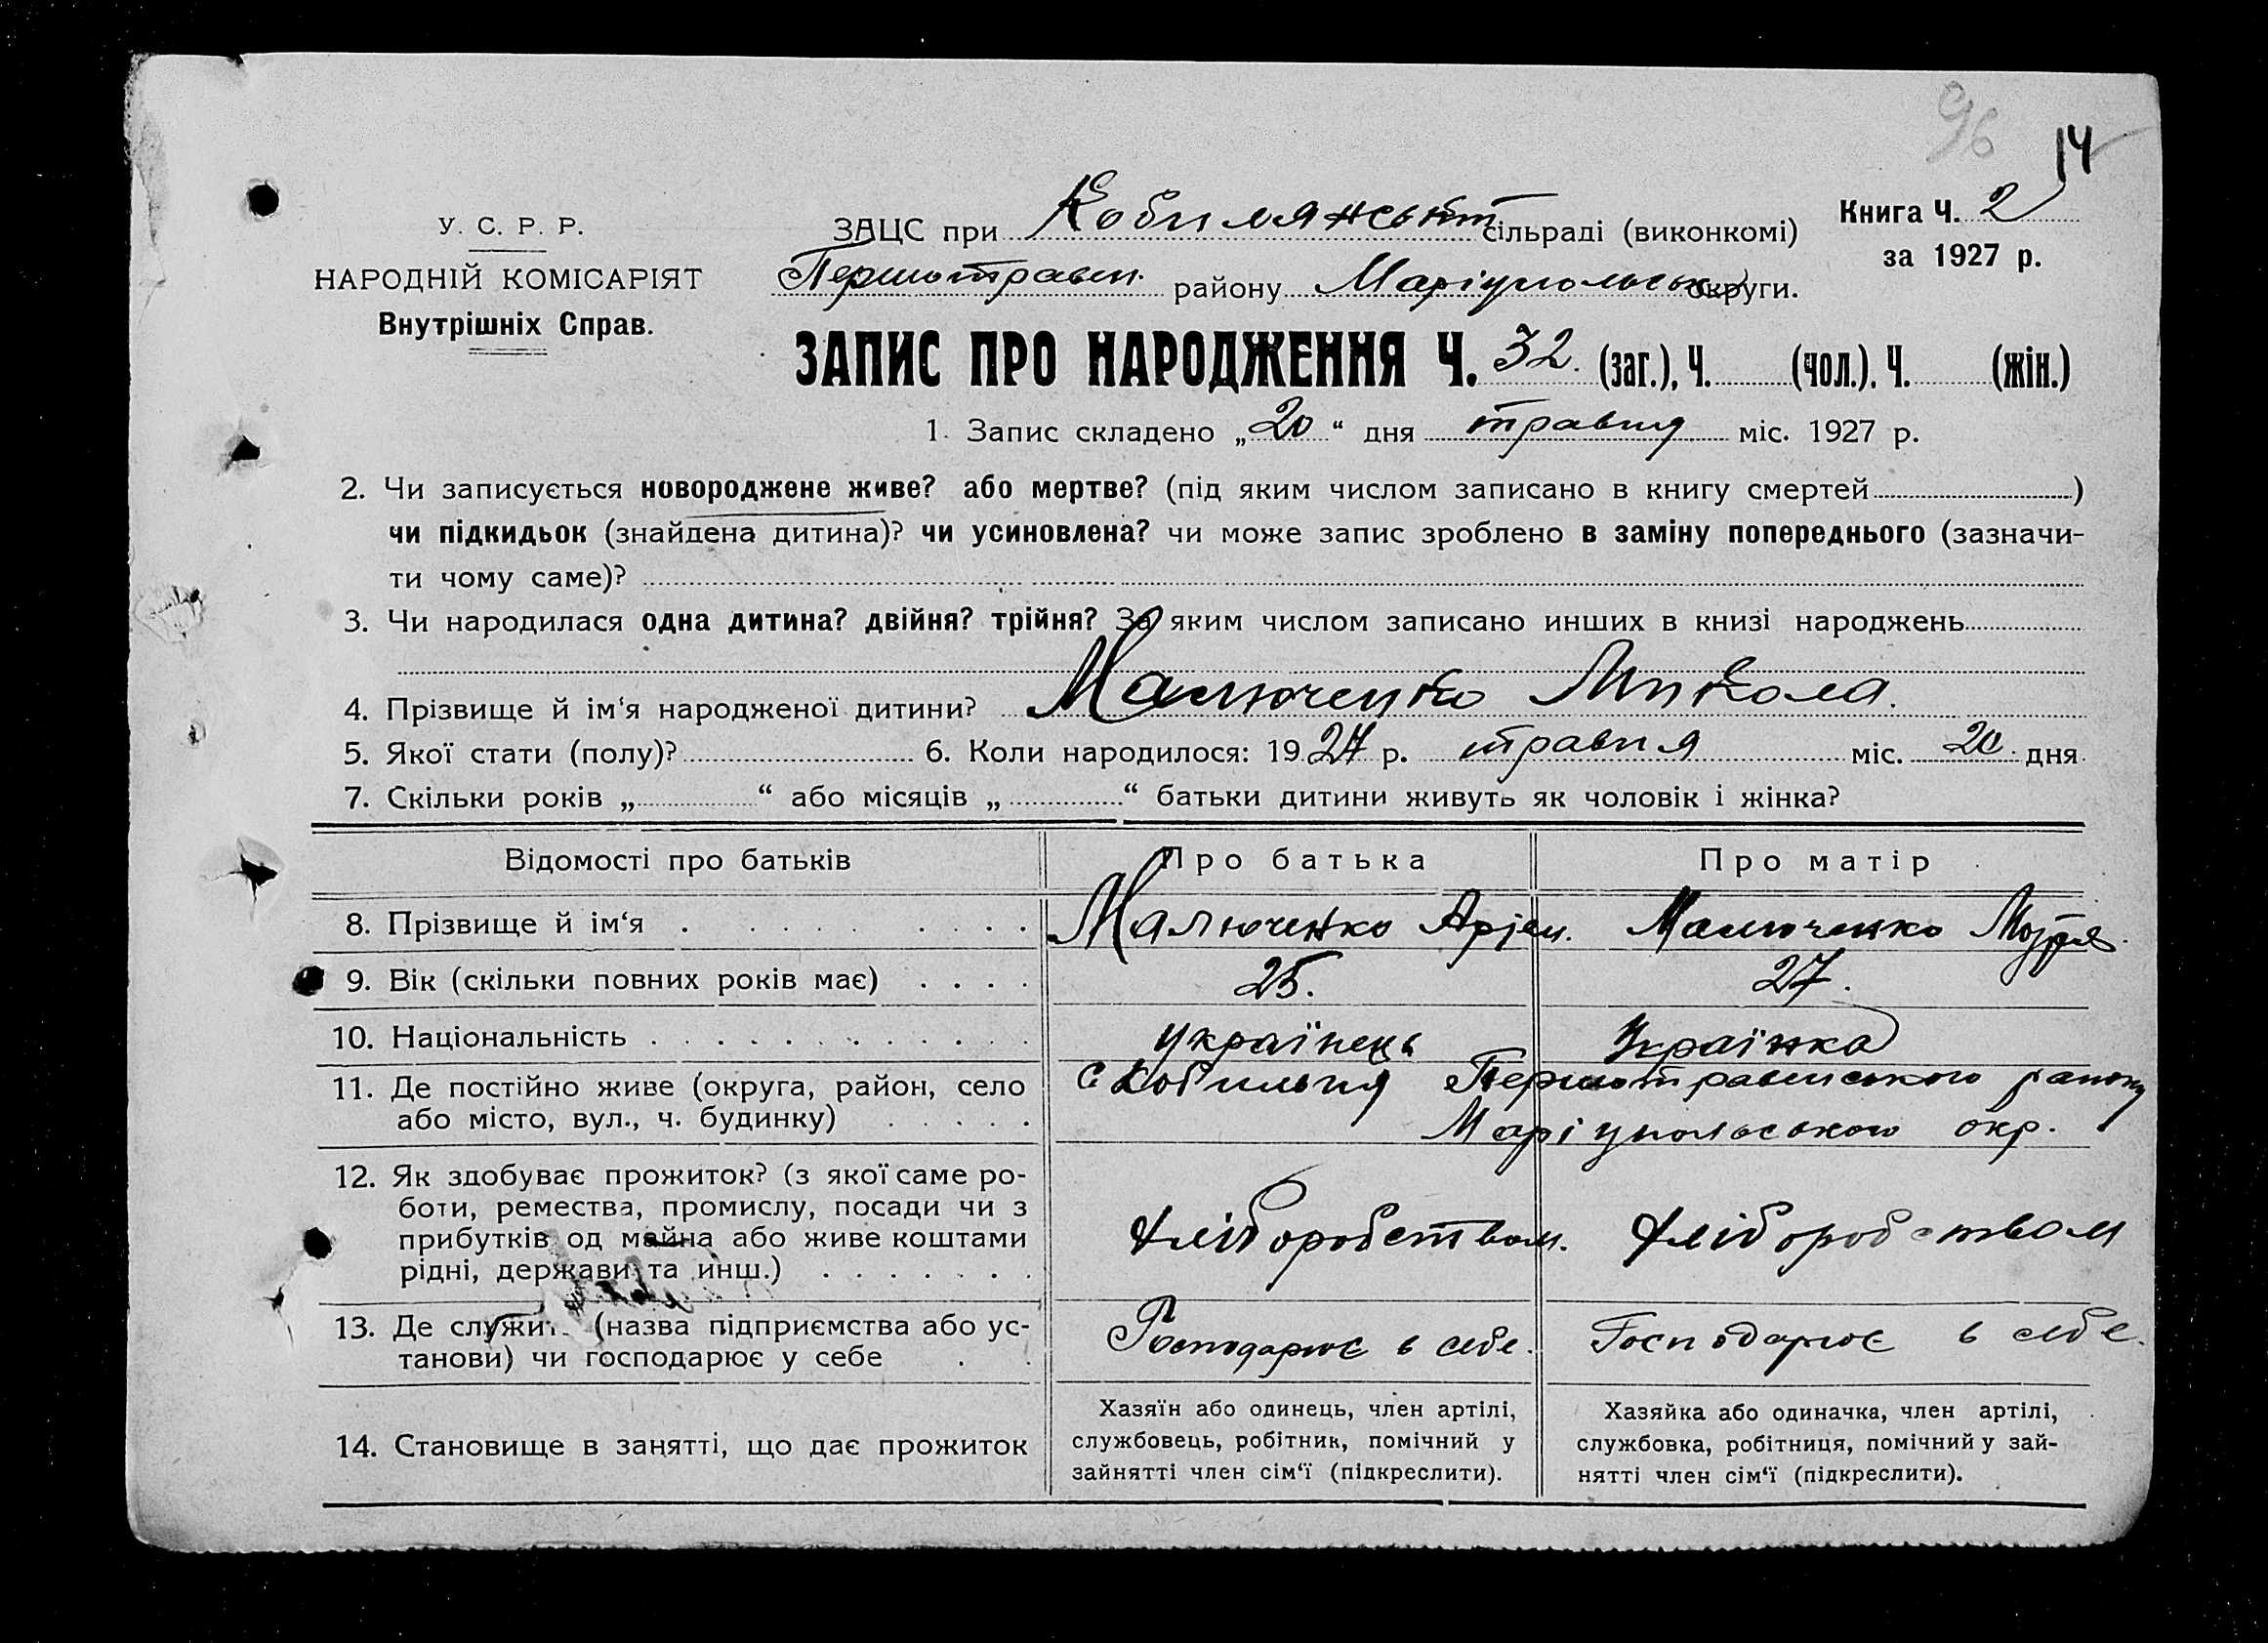 96
14
У. С. Р. Р.
НАРОДНІЙ КОМІСАРІЯТ
Внутрішніх Справ.
ЗАЦС при Кобилянськ сільраді (виконкомі)
Першотравен. району Маріупольськ округи.
Книга Ч. 2
за 1927 р.
ЗАПИС ПРО НАРОДЖЕННЯ Ч. 32. (заг.), Ч. (чол.). Ч. (жін.)
1. Запис складено „20“ дня травня міс. 1927 р.
2. Чи записується новороджене живе? або мертве? (під яким числом записано в книгу смертей )
чи підкидьок (знайдена дитина)? чи усиновлена? чи може запис зроблено в заміну попереднього (зазначи-
ти чому саме)?
3. Чи народилася одна дитина? двійня? трійня? За яким числом записано инших в книзі народжень
4. Прізвище й ім‘я народженої дитини? Малюченко Микола.
5. Якої стати (полу)? 6. Коли народилося: 1927 р. травня міс. 20 дня
7. Скільки років „ “ або місяців „ “ батьки дитини живуть як чоловік і жінка?
Відомості про батьків Про батька Про матір
8. Прізвище й ім‘я . . . . . . . . Малюченко Малюченко Мотря.
9. Вік (скільки повних років має) . . . . 25. 27.
10. Національність . . . . . . . . . . . . . українець Українка
11. Де постійно живе (округа, район, село
або місто, вул., ч. будинку) . . . . .
с Кобильня Першотравенського району
Маріупольською окр.
12. Як здобуває прожиток? (з якої саме ро-
боти, ремества, промислу, посади чи з
прибутків од майна або живе коштами
рідні, держави та инш.) . . . . . . .
Хліборобством. Хліборобством
13. Де служить (назва підприємства або ус-
танови) чи господарює у себе . .
Господарює в себе. Господарює в себе.
14. Становище в занятті, що дає прожиток
Хазяїн або одинець, член артілі,
службовець, робітник, помічний у
зайнятті член сім‘ї (підкреслити).
Хазяйка або одиначка, член артілі,
службовка, робітниця, помічний у зай-
нятті член сім‘ї (підкреслити).